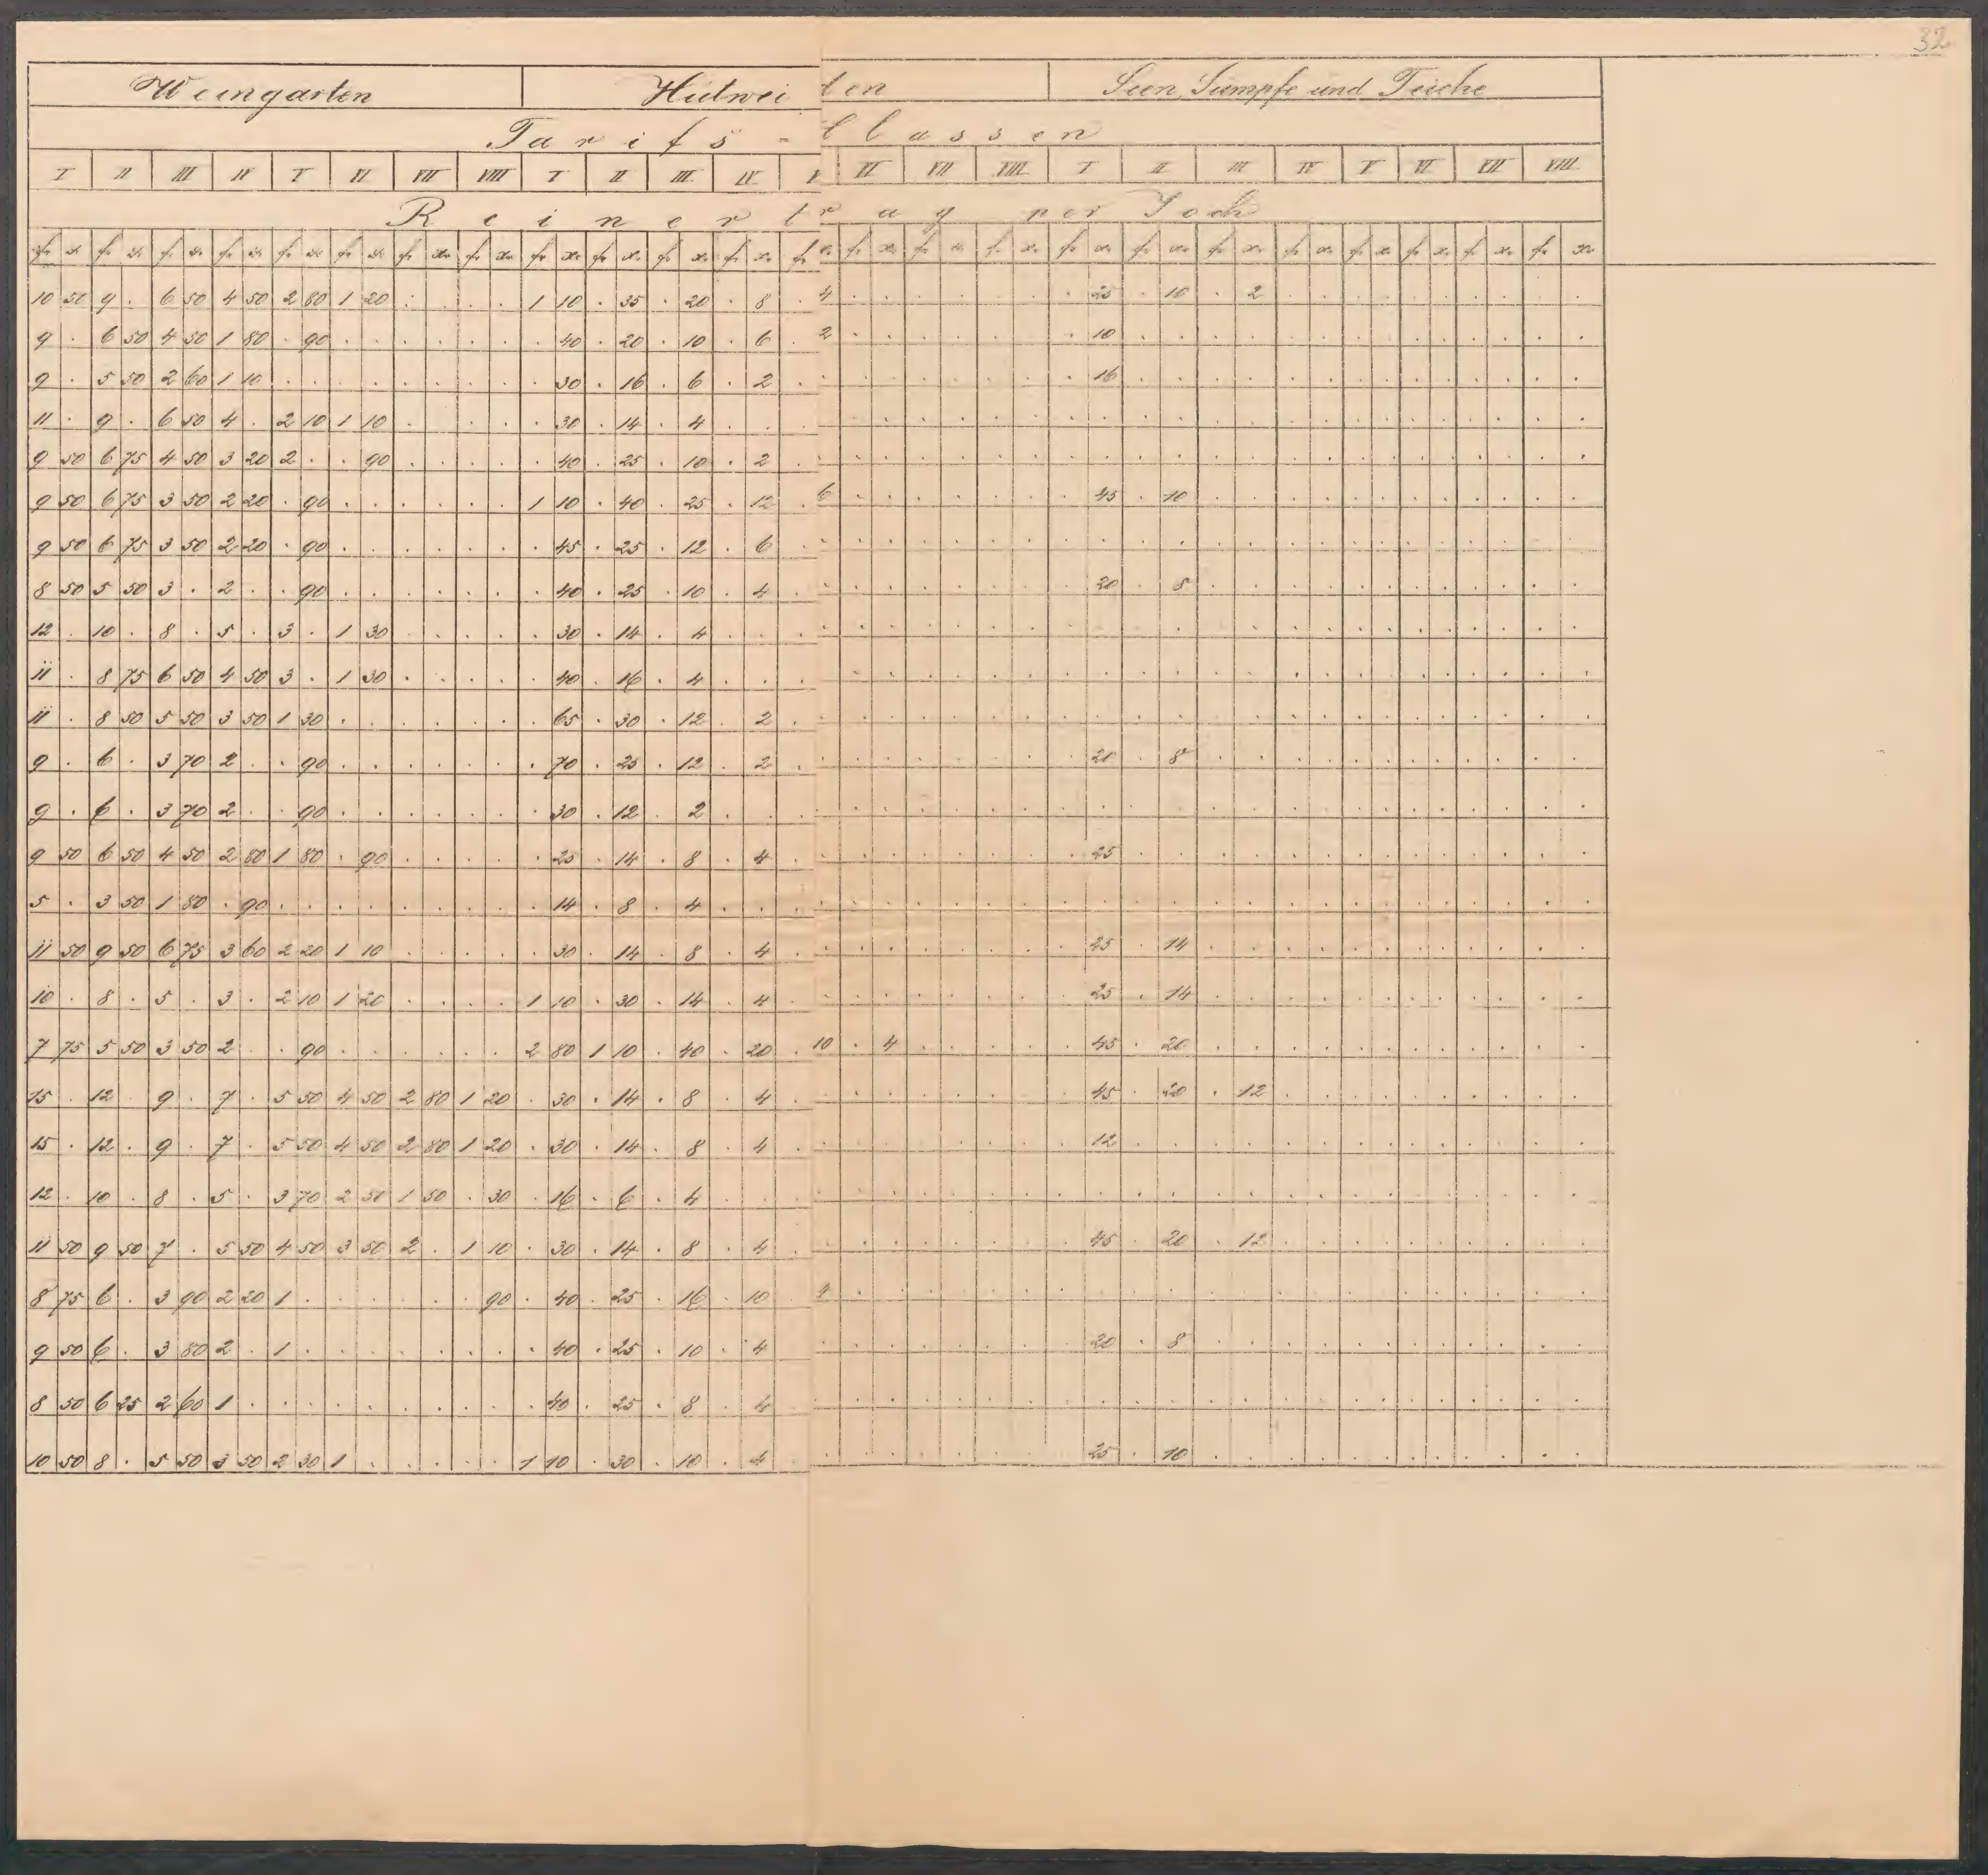 32
Weingärten Hutweiden Seen, Sümpfe und Teiche
Tarifs - Classen
I II III IV V VI VII VIII I II III IV V VI VII VIII I II III IV V VI VII VIII
Reinertrag per Joch
fr xr fr xr fr xr fr xr fr xr fr xr fr xr fr xr fr xr fr xr fr xr fr xr fr xr fr xr fr xr fr xr fr xr fr xr fr xr fr xr fr xr fr xr fr xr fr xr
10 50 9 . 6 50 4 50 2 80 1 20 . . . . 1 10 . 35 . 20 . 8 . 4 . . . . . . . 25 . 10 . 2 . . . . . . . . . .
9 . 6 50 4 50 1 80 . 90 . . . . . . . 40 . 20 . 10 . 6 . 2 . . . . . . . 10 . . . . . . . . . . . . . .
9 . 5 50 2 60 1 10 . . . . . . . . . 30 . 16 . 6 . 2 . . . . . . . . . 16 . . . . . . . . . . . . . .
11 . 9 . 6 50 4 . 2 10 1 10 . . . . . 30 . 14 . 4 . . . . . . . . . . . . . . . . . . . . . . . . . .
9 50 6 75 4 50 3 20 2 . . 90 . . . . . 40 . 25 . 10 . 2 . . . . . . . . . . . . . . . . . . . . . . . .
9 50 6 75 3 50 2 20 . 90 . . . . . . 1 10 . 40 . 25 . 12 . 6 . . . . . . . 45 . 10 . . . . . . . . . . . .
9 50 6 75 3 50 2 20 . 90 . . . . . . . 45 . 25 . 12 . 6 . . . . . . . . . . . . . . . . . . . . . . . .
8 50 5 50 3 . 2 . . 90 . . . . . . . 40 . 25 . 10 . 4 . . . . . . . . . 20 . 8 . . . . . . . . . . . .
12 . 10 . 8 . 5 . 3 . 1 30 . . . . . 30 . 14 . 4 . . . . . . . . . . . . . . . . . . . . . . . . . .
11 . 8 75 6 50 4 50 3 . 1 30 . . . . . 40 . 16 . 4 . . . . . . . . . . . . . . . . . . . . . . . . . .
11 . 8 50 5 50 3 50 1 30 . . . . . . . 65 . 30 . 12 . 2 . . . . . . . . . . . . . . . . . . . . . . . .
9 . 6 . 3 70 2 . . 90 . . . . . . . 70 . 25 . 12 . 2 . . . . . . . . . 20 . 8 . . . . . . . . . . . .
9 . 6 . 3 70 2 . . 90 . . . . . . . 30 . 12 . 2 . . . . . . . . . . . . . . . . . . . . . . . . . .
9 50 6 50 4 50 2 80 1 80 . 90 . . . . . 25 . 14 . 8 . 4 . . . . . . . . . 25 . . . . . . . . . . . . . .
5 . 3 50 1 80 . 90 . . . . . . . . . 14 . 8 . 4 . . . . . . . . . . . . . . . . . . . . . . . . . .
11 50 9 50 6 75 3 60 2 20 1 10 . . . . . 30 . 14 . 8 . 4 . . . . . . . . . 25 . 14 . . . . . . . . . . . .
10 . 8 . 5 . 3 . 2 10 1 20 . . . . 1 10 . 30 . 14 . 4 . . . . . . . . . 25 . 14 . . . . . . . . . . . .
7 75 5 50 3 50 2 . . 90 . . . . . . 2 80 1 10 . 40 . 20 . 10 . 4 . . . . . 45 . 20 . . . . . . . . . . . .
15 . 12 . 9 . 7 . 5 50 4 50 2 80 1 20 . 30 . 14 . 8 . 4 . . . . . . . . . 45 . 20 . 12 . . . . . . . . . .
15 . 12 . 9 . 7 . 5 50 4 50 2 80 1 20 . 30 . 14 . 8 . 4 . . . . . . . . . 12 . . . . . . . . . . . . . .
12 . 10 . 8 . 5 . 3 70 2 50 1 50 . 30 . 16 . 6 . 4 . . . . . . . . . . . . . . . . . . . . . . . . . .
11 50 9 50 7 . 5 50 4 50 3 50 2 . 1 10 . 30 . 14 . 8 . 4 . . . . . . . . . 45 . 20 . 12 . . . . . . . . . .
8 75 6 . 3 90 2 20 1 . . . . . . 90 . 40 . 25 . 16 . 10 . 4 . . . . . . . . . . . . . . . . . . . . . .
9 50 6 . 3 80 2 . 1 . . . . . . . . 40 . 25 . 10 . 4 . . . . . . . . . 20 . 8 . . . . . . . . . . . .
8 50 6 25 2 60 1 . . . . . . . . . . 40 . 25 . 8 . 4 . . . . . . . . . . . . . . . . . . . . . . . .
10 50 8 . 5 50 3 50 2 30 1 . . . . . 1 10 . 30 . 10 . 4 . . . . . . . . . 25 . 10 . . . . . . . . . . . .